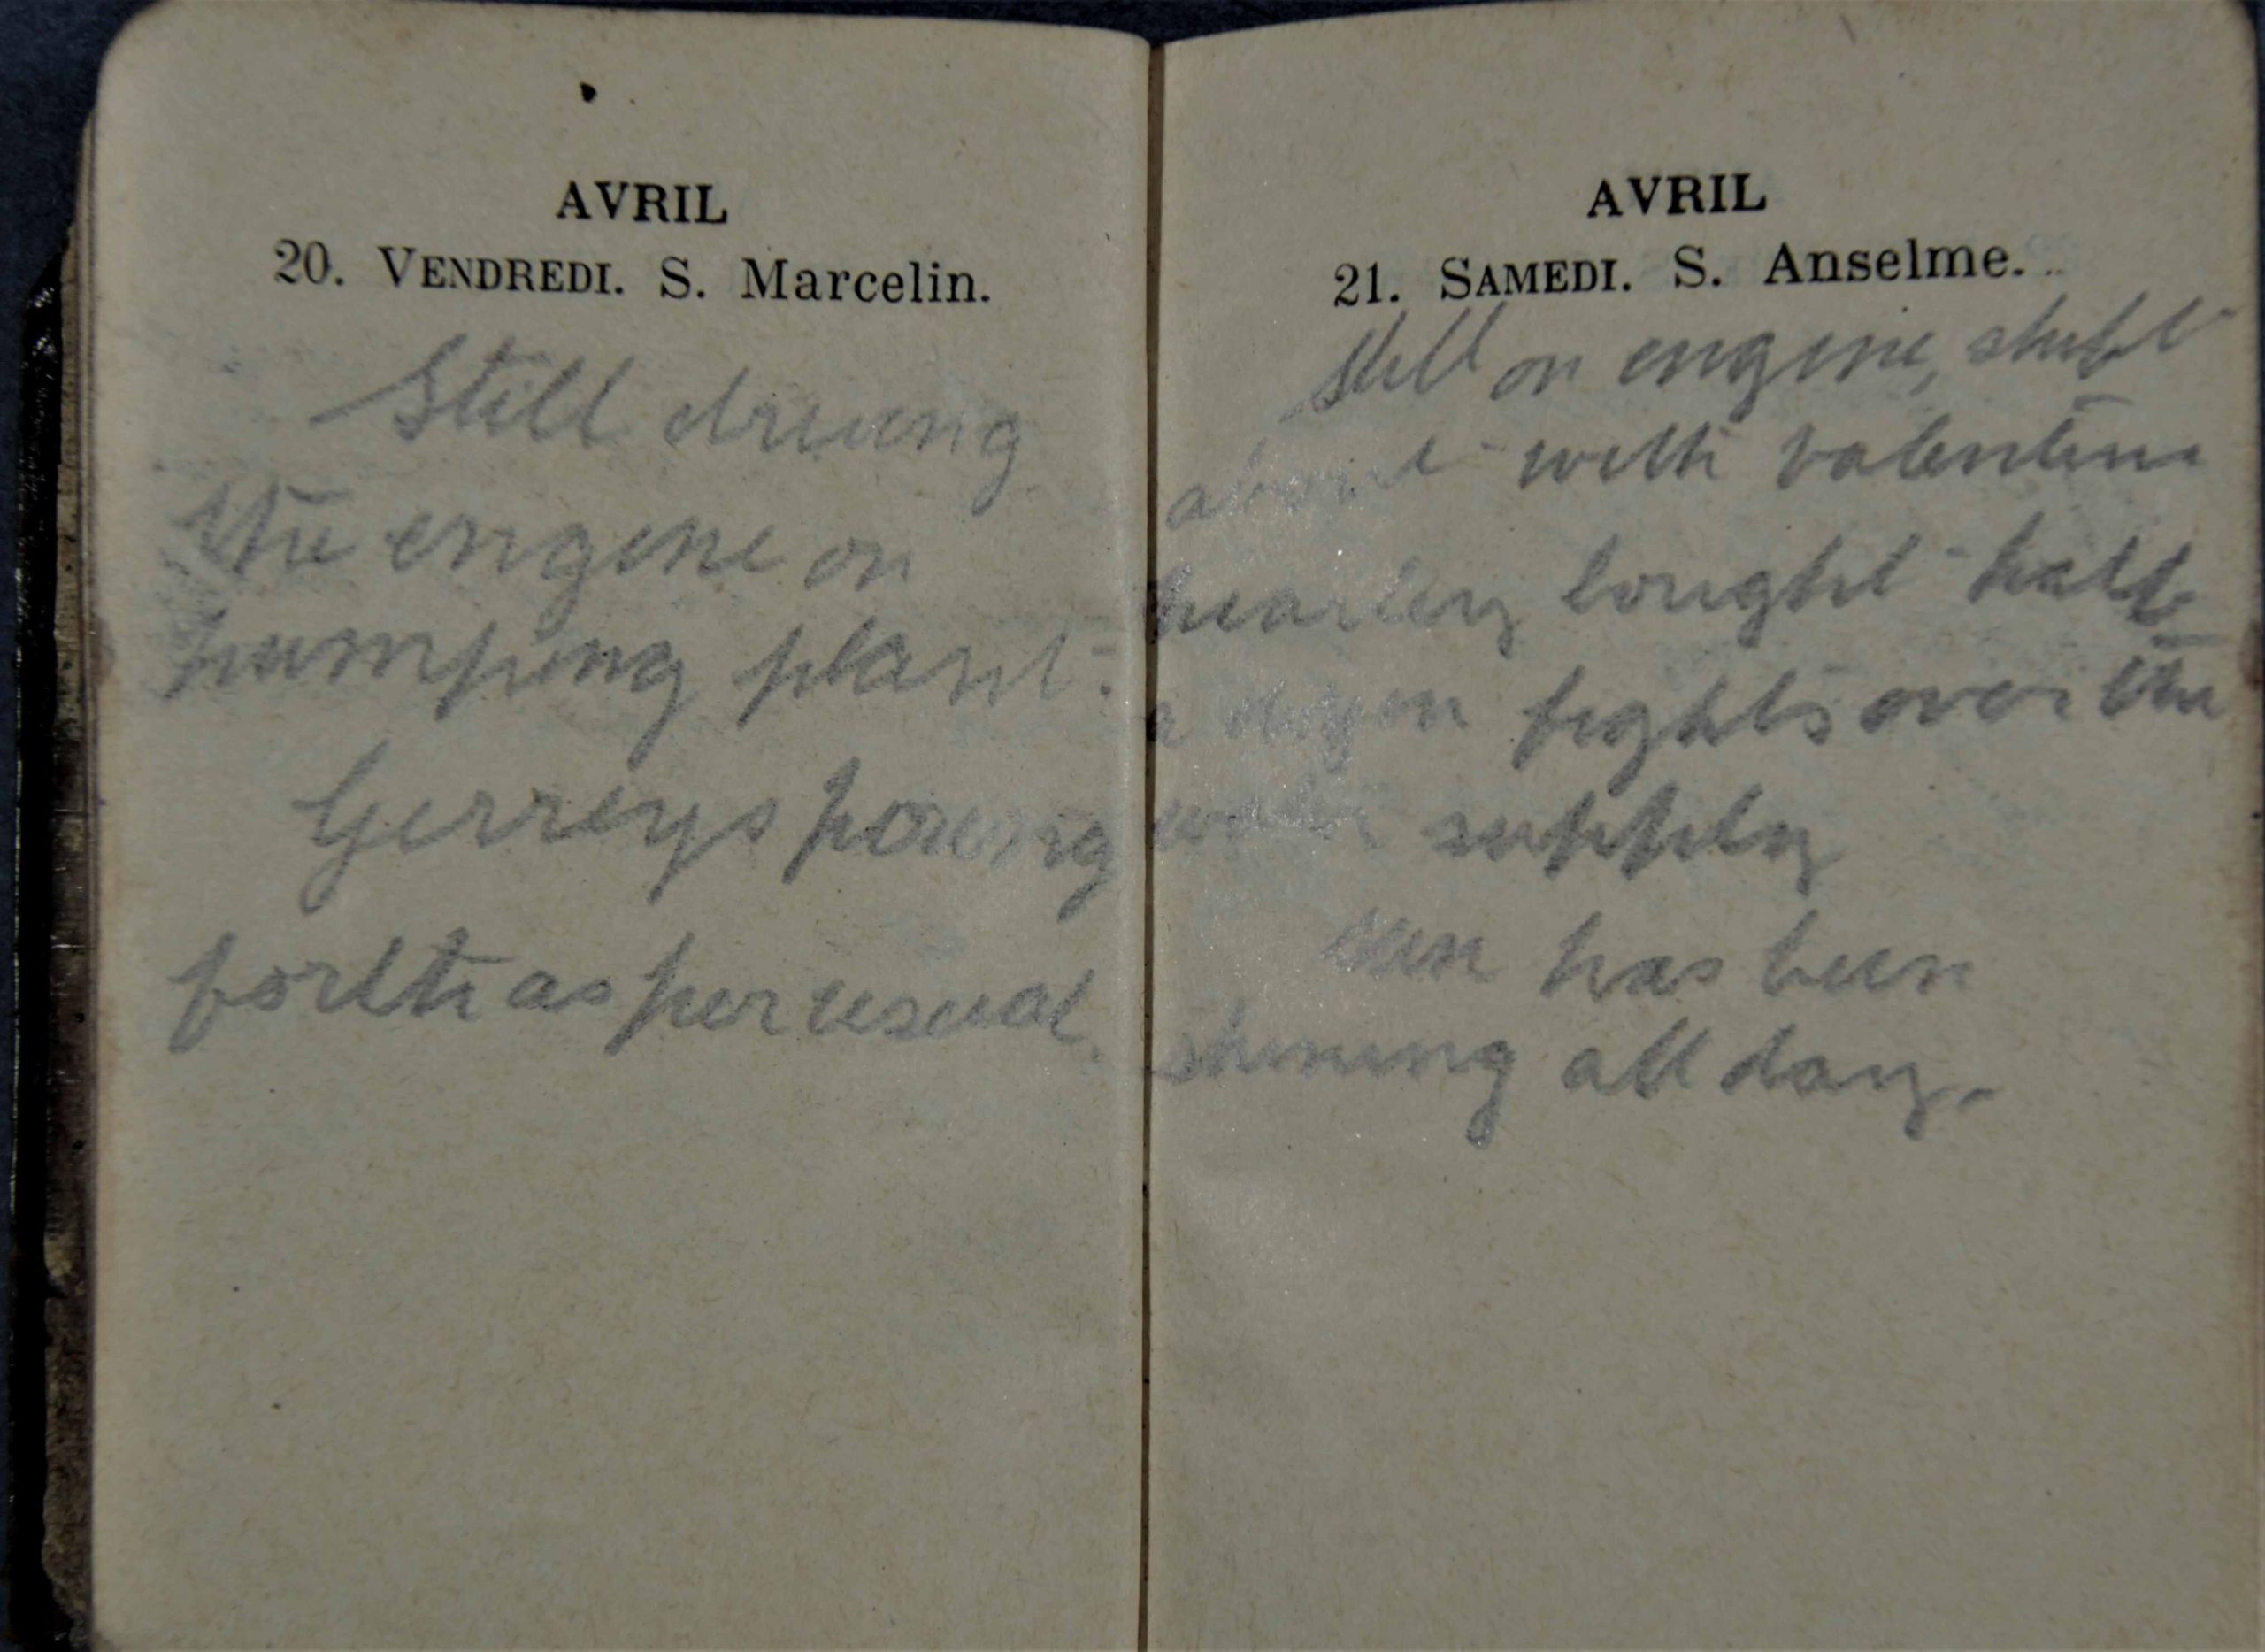 AVRIL
20. VENDREDI. S. Marcelin.
Still driving
the engine on
pumping plant.
Gerreys poring
forth as per usual.
AVRIL
21. SAMEDI. S. Anselme.
Still on engine, shift
about with Valentine
nearly fought half
a dozen fights over the
water supply
sun has been
shining all day.